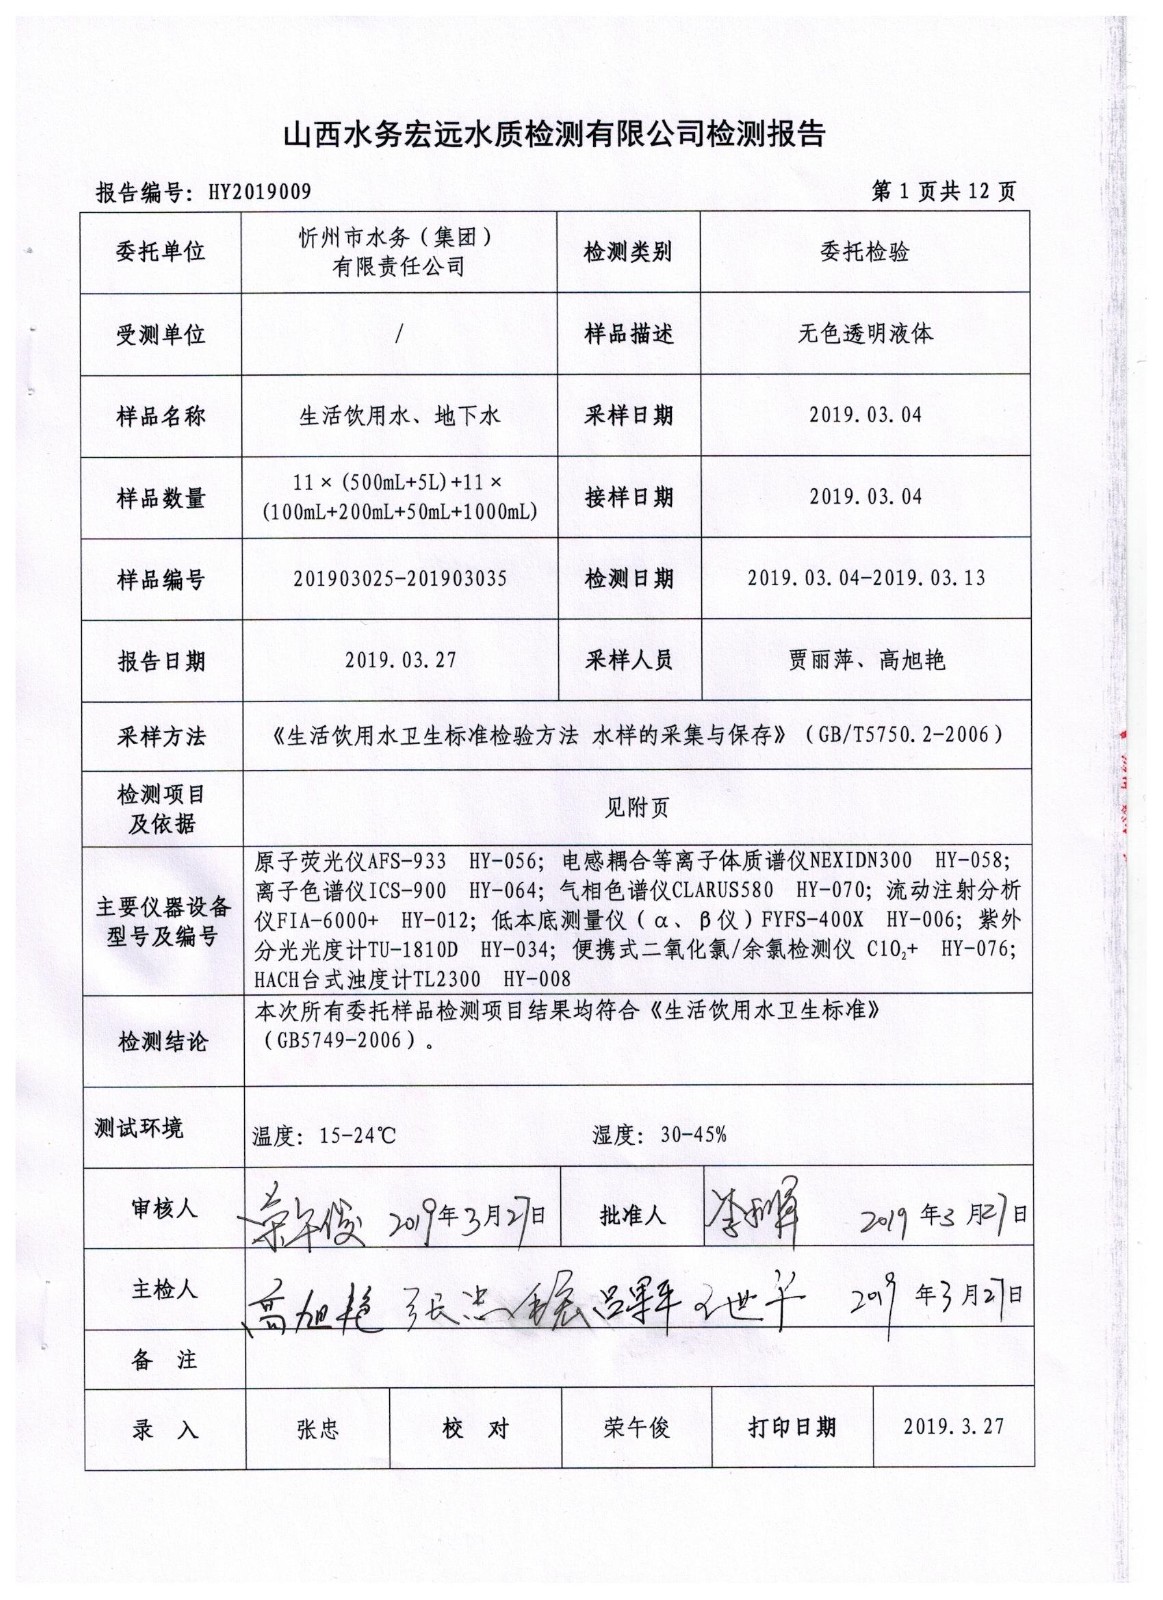 山西水务宏远水质检测有限公司检测报告
报告编号：HY2019009 第 1 页共 12 页
委托单位 忻州市水务（集团）
有限责任公司 检测类别 委托检验
受测单位 / 样品描述 无色透明液体
样品名称 生活饮用水、地下水 采样日期 2019.03.04
样品数量 11×(500mL+5L)+11×
(100mL+200mL+50mL+1000mL) 接样日期 2019.03.04
样品编号 201903025-201903035 检测日期 2019.03.04-2019.03.13
报告日期 2019.03.27 采样人员 贾丽萍、高旭艳
采样方法 《生活饮用水卫生标准检验方法 水样的采集与保存》（GB/T5750.2-2006）
检测项目
及依据 见附页
主要仪器设备
型号及编号
原子荧光仪AFS-933 HY-056；电感耦合等离子体质谱仪NEXIDN300 HY-058；
离子色谱仪ICS-900 HY-064；气相色谱仪CLARUS580 HY-070；流动注射分析
仪FIA-6000+ HY-012；低本底测量仪（α、β仪）FYFS-400X HY-006；紫外
分光光度计TU-1810D HY-034；便携式二氧化氯/余氯检测仪 ClO₂+ HY-076；
HACH台式浊度计TL2300 HY-008
检测结论 本次所有委托样品检测项目结果均符合《生活饮用水卫生标准》
（GB5749-2006）。
测试环境 温度：15-24℃ 湿度：30-45%
审核人 荣午俊 2019年3月27日 批准人 2019年3月27日
主检人 高旭艳 张忠 2019年3月27日
备 注
录 入 张忠 校 对 荣午俊 打印日期 2019.3.27